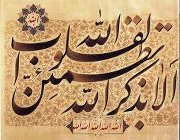 الله
الا بذكر الله
تطمئن القلوب